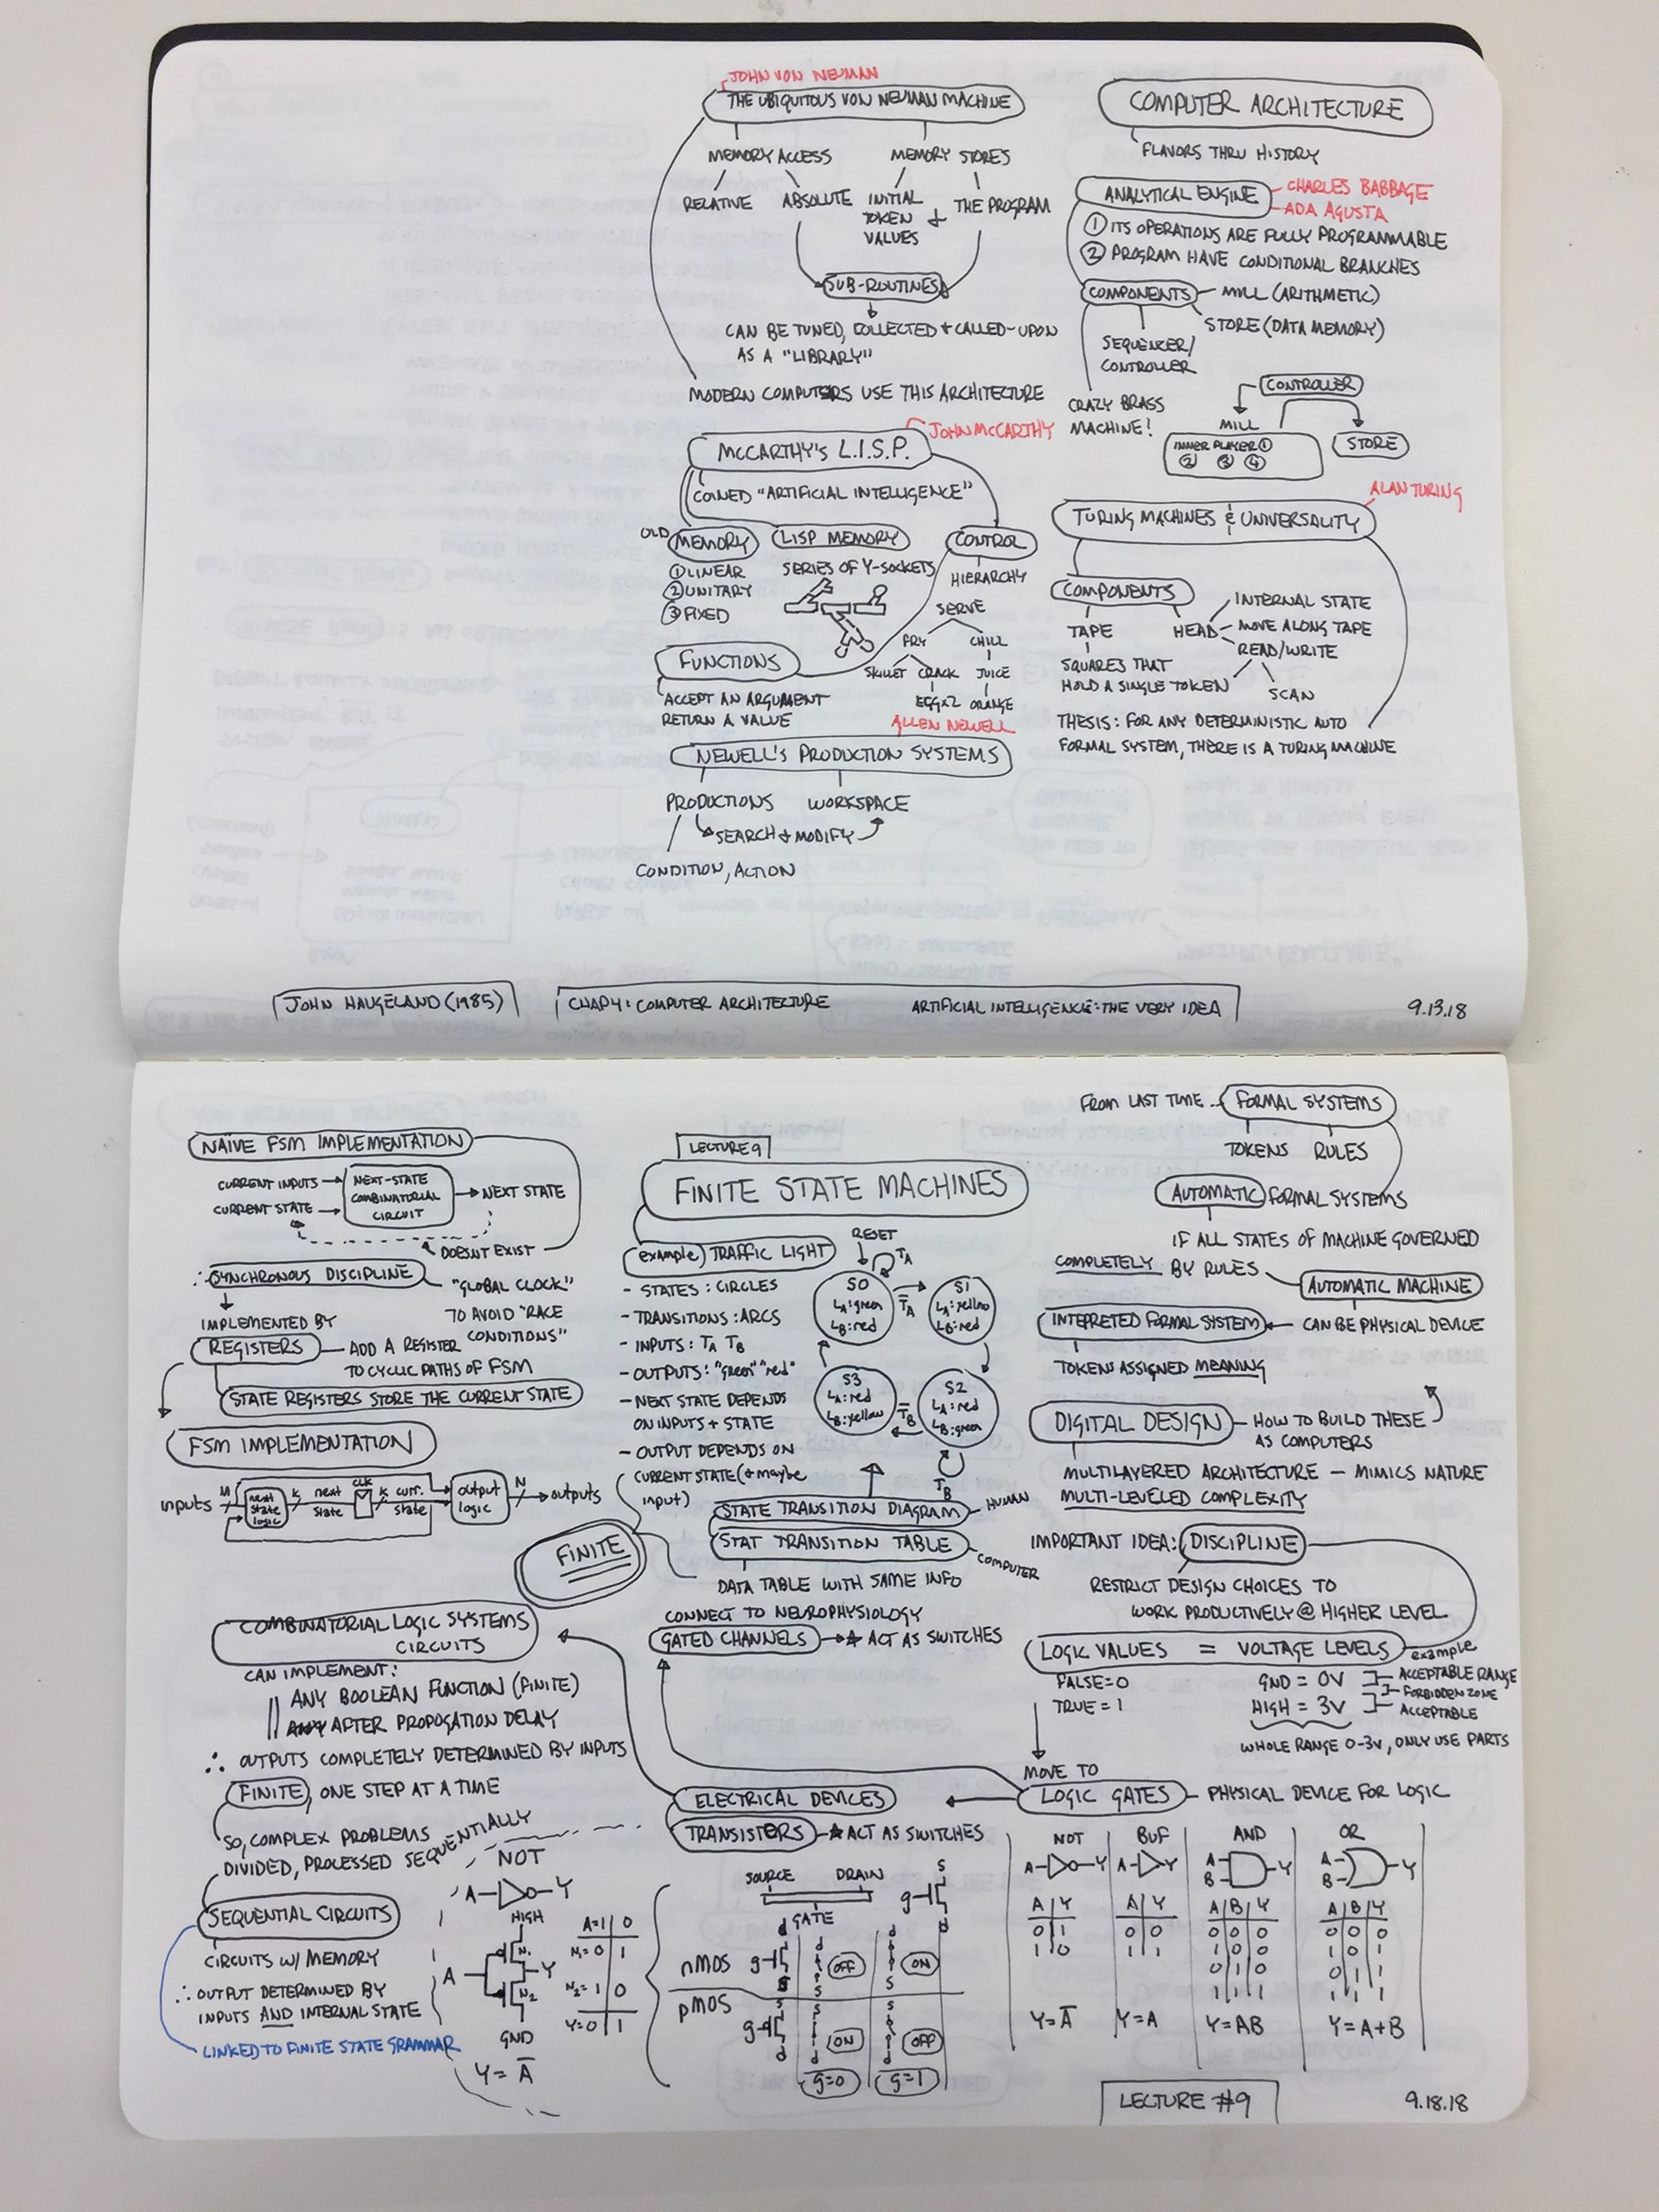 JOHN VON NEUMAN
THE UBIQUITOUS VON NEUMAN MACHINE
MEMORY ACCESS
MEMORY STORES
RELATIVE
ABSOLUTE
INITIAL
TOKEN
VALUES
&
THE PROGRAM
SUB-ROUTINES
CAN BE TUNED, COLLECTED + CALLED-UPON
AS A "LIBRARY"
MODERN COMPUTERS USE THIS ARCHITECTURE
JOHN MCCARTHY
MCCARTHY'S L.I.S.P.
COINED "ARTIFICIAL INTELLIGENCE"
OLD MEMORY
① LINEAR
② UNITARY
③ FIXED
LISP MEMORY
SERIES OF Y-SOCKETS
CONTROL
HIERARCHY
SERVE
FRY
CHILL
SKILLET CRACK JUICE
EGGX2 ORANGE
FUNCTIONS
ACCEPT AN ARGUMENT
RETURN A VALUE
ALLEN NEWELL
NEWELL'S PRODUCTION SYSTEMS
PRODUCTIONS WORKSPACE
SEARCH + MODIFY
CONDITION, ACTION
COMPUTER ARCHITECTURE
FLAVORS THRU HISTORY
ANALYTICAL ENGINE
CHARLES BABBAGE
ADA AGUSTA
① ITS OPERATIONS ARE FULLY PROGRAMMABLE
② PROGRAM HAVE CONDITIONAL BRANCHES
COMPONENTS
MILL (ARITHMETIC)
STORE (DATA MEMORY)
SEQUENCER/
CONTROLLER
CRAZY BRASS
MACHINE!
CONTROLLER
MILL
INNER PLAYER ①
② ③ ④
STORE
ALAN TURING
TURING MACHINES & UNIVERSALITY
COMPONENTS
TAPE
SQUARES THAT
HOLD A SINGLE TOKEN
HEAD
INTERNAL STATE
MOVE ALONG TAPE
READ/WRITE
SCAN
THESIS: FOR ANY DETERMINISTIC AUTO
FORMAL SYSTEM, THERE IS A TURING MACHINE
JOHN HAUGELAND (1985)
CHAP 4: COMPUTER ARCHITECTURE
ARTIFICIAL INTELLIGENCE: THE VERY IDEA
9.13.18
NAIVE FSM IMPLEMENTATION
CURRENT INPUTS
CURRENT STATE
NEXT-STATE
COMBINATORIAL
CIRCUIT
NEXT STATE
DOESN'T EXIST
∴ SYNCHRONOUS DISCIPLINE
"GLOBAL CLOCK"
TO AVOID "RACE
CONDITIONS"
IMPLEMENTED BY
REGISTERS
ADD A REGISTER
TO CYCLIC PATHS OF FSM
STATE REGISTERS STORE THE CURRENT STATE
FSM IMPLEMENTATION
inputs
M
next
state
logic
K
next
state
CLK
K
curr.
state
output
logic
N
outputs
FINITE
COMBINATORIAL LOGIC SYSTEMS
CIRCUITS
CAN IMPLEMENT:
ANY BOOLEAN FUNCTION (FINITE)
AFTER PROPOGATION DELAY
∴ OUTPUTS COMPLETELY DETERMINED BY INPUTS
FINITE, ONE STEP AT A TIME
SO, COMPLEX PROBLEMS
DIVIDED, PROCESSED SEQUENTIALLY
SEQUENTIAL CIRCUITS
CIRCUITS W/ MEMORY
∴ OUTPUT DETERMINED BY
INPUTS AND INTERNAL STATE
LINKED TO FINITE STATE GRAMMAR
NOT
A Y
HIGH
N1
A Y
N2
GND
Y = A̅
A=1 0
N1=0 1
N2=1 0
Y=0 1
LECTURE 9
FINITE STATE MACHINES
example) TRAFFIC LIGHT
- STATES: CIRCLES
- TRANSITIONS: ARCS
- INPUTS: TA TB
- OUTPUTS: "green" "red"
- NEXT STATE DEPENDS
ON INPUTS + STATE
- OUTPUT DEPENDS ON
CURRENT STATE (+ maybe
input)
RESET
TA
S0
LA: green
LB: red
T̅A
S1
LA: yellow
LB: red
S3
LA: red
LB: yellow
T̅B
S2
LA: red
LB: green
TB
STATE TRANSITION DIAGRAM
HUMAN
STAT TRANSITION TABLE
COMPUTER
DATA TABLE WITH SAME INFO
CONNECT TO NEUROPHYSIOLOGY
GATED CHANNELS
★ ACT AS SWITCHES
ELECTRICAL DEVICES
TRANSISTERS
★ ACT AS SWITCHES
SOURCE DRAIN
GATE
s
g
d
nMOS
d
g
s
d
s
OFF
d
s
ON
pMOS
s
g
d
s
d
ON
s
d
OFF
g=0
g=1
FROM LAST TIME... FORMAL SYSTEMS
TOKENS RULES
AUTOMATIC FORMAL SYSTEMS
IF ALL STATES OF MACHINE GOVERNED
COMPLETELY BY RULES
AUTOMATIC MACHINE
INTEPRETED FORMAL SYSTEM
CAN BE PHYSICAL DEVICE
TOKENS ASSIGNED MEANING
DIGITAL DESIGN
HOW TO BUILD THESE
AS COMPUTERS
MULTILAYERED ARCHITECTURE - MIMICS NATURE
MULTI-LEVELED COMPLEXITY
IMPORTANT IDEA: DISCIPLINE
RESTRICT DESIGN CHOICES TO
WORK PRODUCTIVELY @ HIGHER LEVEL
LOGIC VALUES = VOLTAGE LEVELS
example
FALSE = 0
TRUE = 1
GND = 0V
HIGH = 3V
ACCEPTABLE RANGE
FORBIDDEN ZONE
ACCEPTABLE
WHOLE RANGE 0-3V, ONLY USE PARTS
MOVE TO
LOGIC GATES
PHYSICAL DEVICE FOR LOGIC
NOT BUF AND OR
A Y A Y A B Y A B Y
A Y A Y A B Y A B Y
0 1 0 0 0 0 0 0 0 0
1 0 1 1 1 0 0 1 0 1
0 1 0 0 1 1
1 1 1 1 1 1
Y=A̅ Y=A Y=AB Y=A+B
LECTURE #9
9.18.18